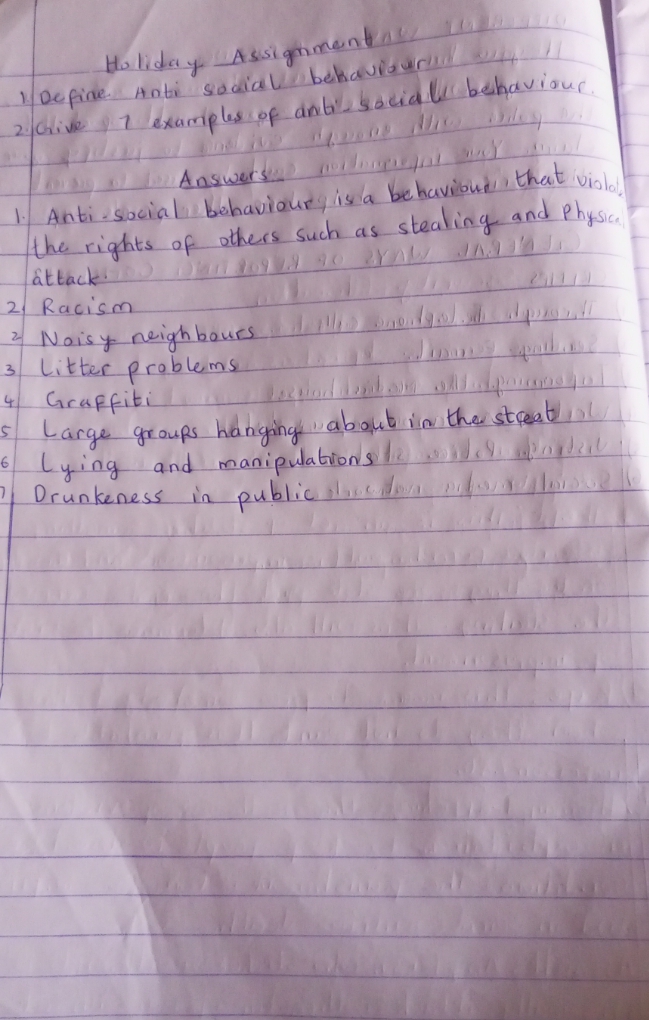 Holiday Assignment
1 Define Anti social behaviour
2 Give 7 examples of anti-social behaviour.
Answers
1. Anti-social behaviour, is a behaviour that
the rights of others such as stealing and
attack.
2 Racism
2 Noisy neighbours
3 Litter problems
4 Graffiti
5 Large groups hanging about in the street
6 Lying and manipulations
7 Drunkeness in public